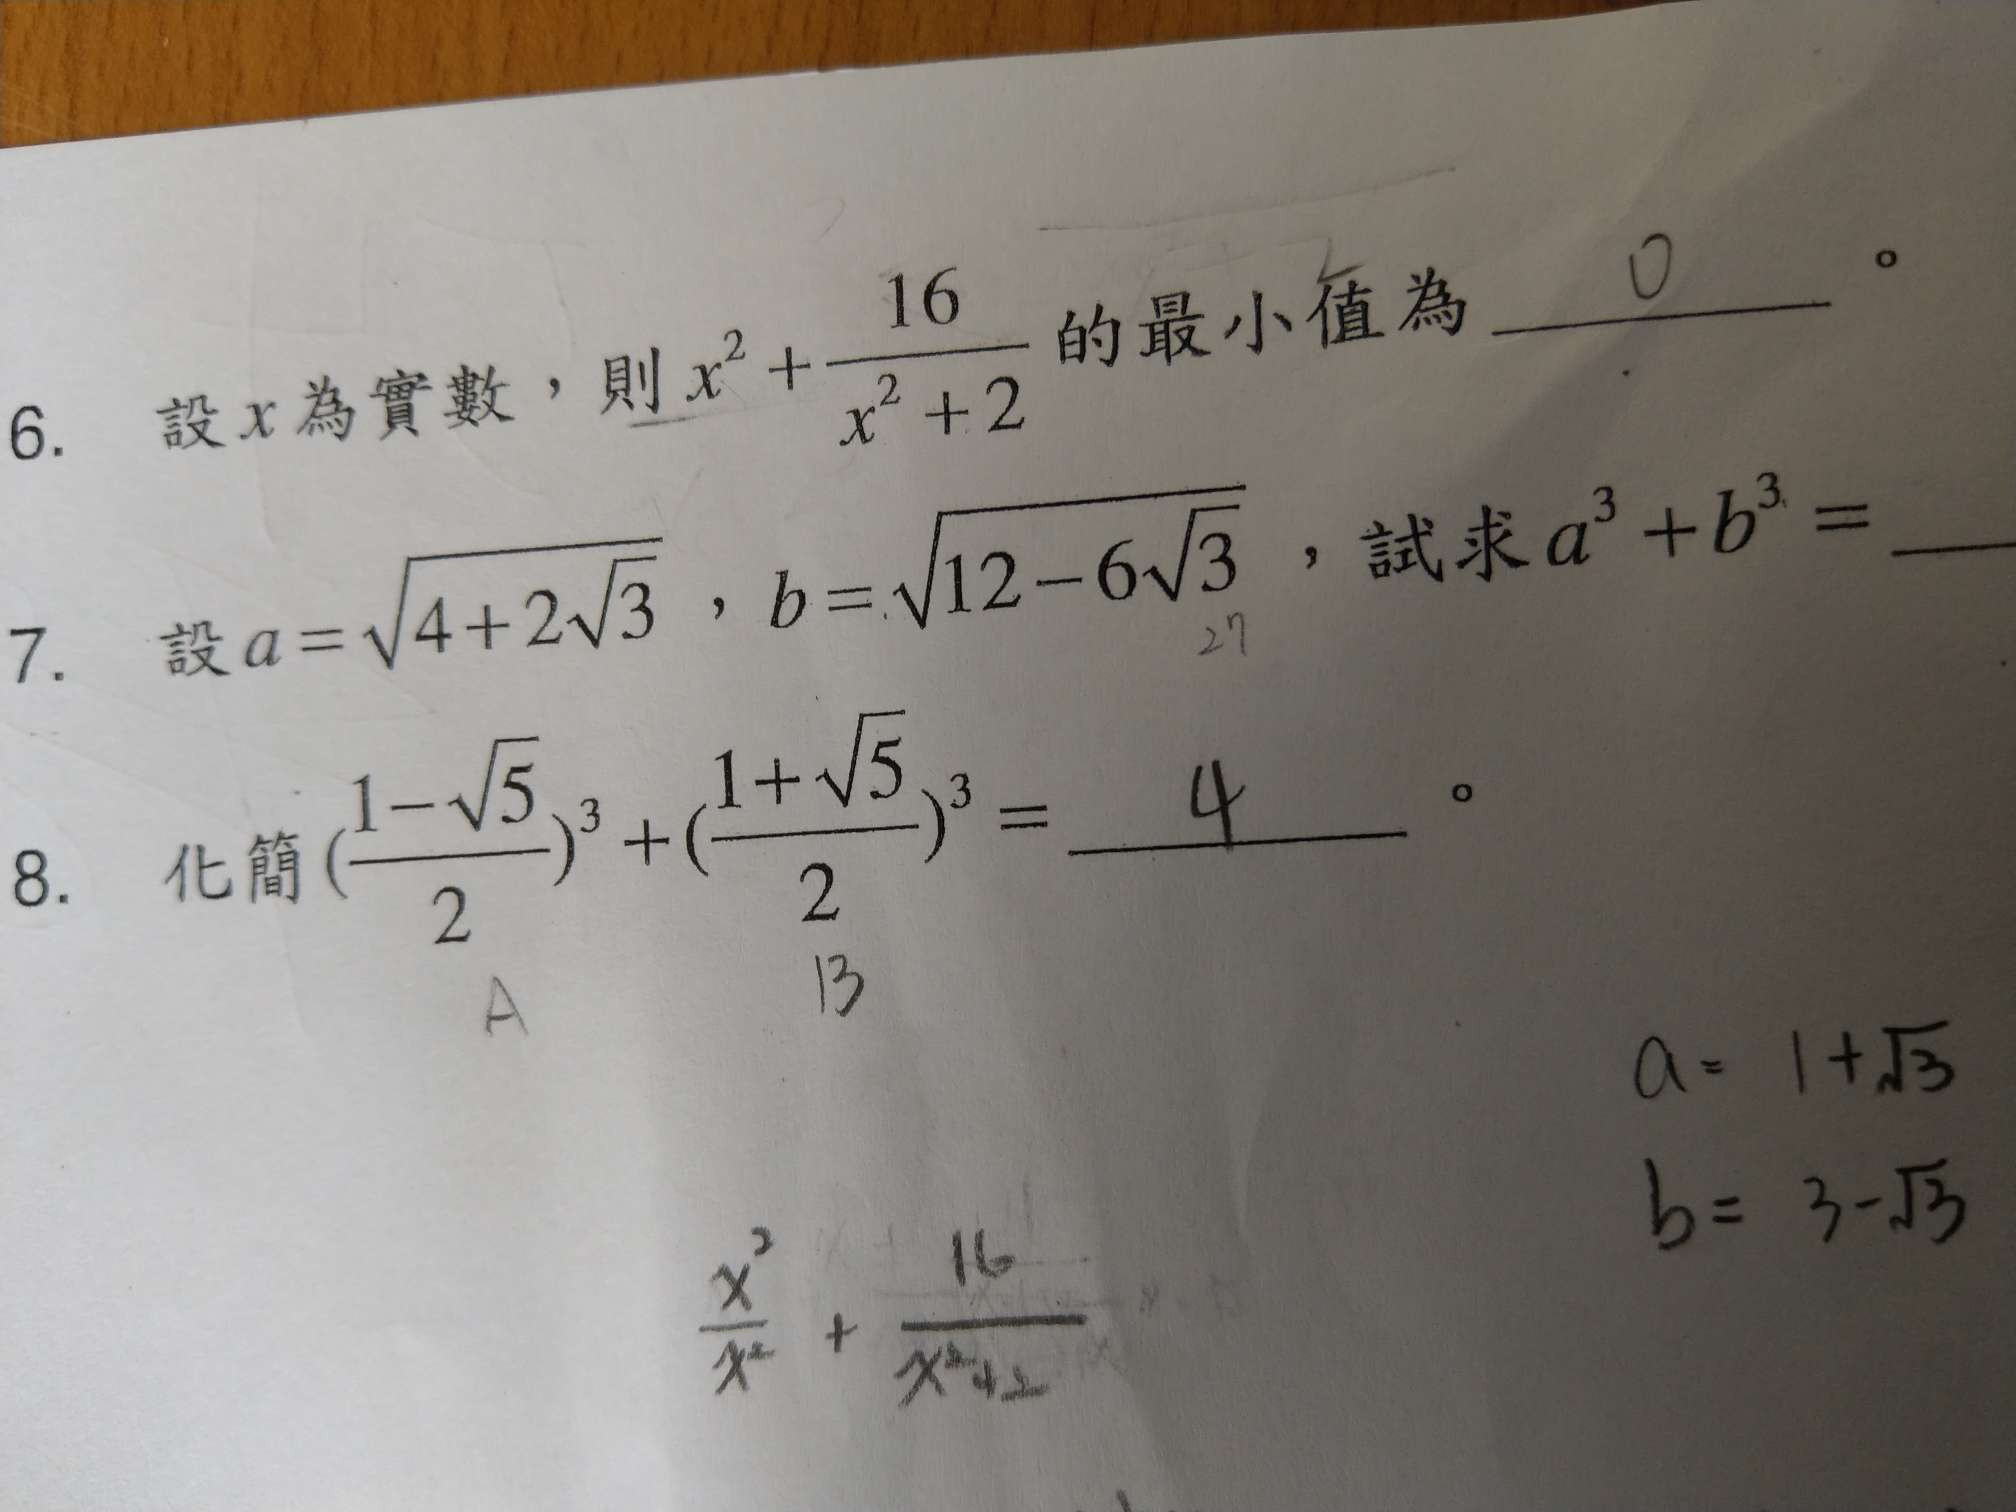 6. 設 x 為實數，則 x² + 16/(x² + 2) 的最小值為 0 。
7. 設 a = √(4+2√3) ，b = √(12−6√3) ，試求 a³ + b³ =
27
8. 化簡 ((1−√5)/2)³ + ((1+√5)/2)³ = 4 。
A B
a = 1+√3
b = 3-√3
x²/x² + 16/(x²+2)